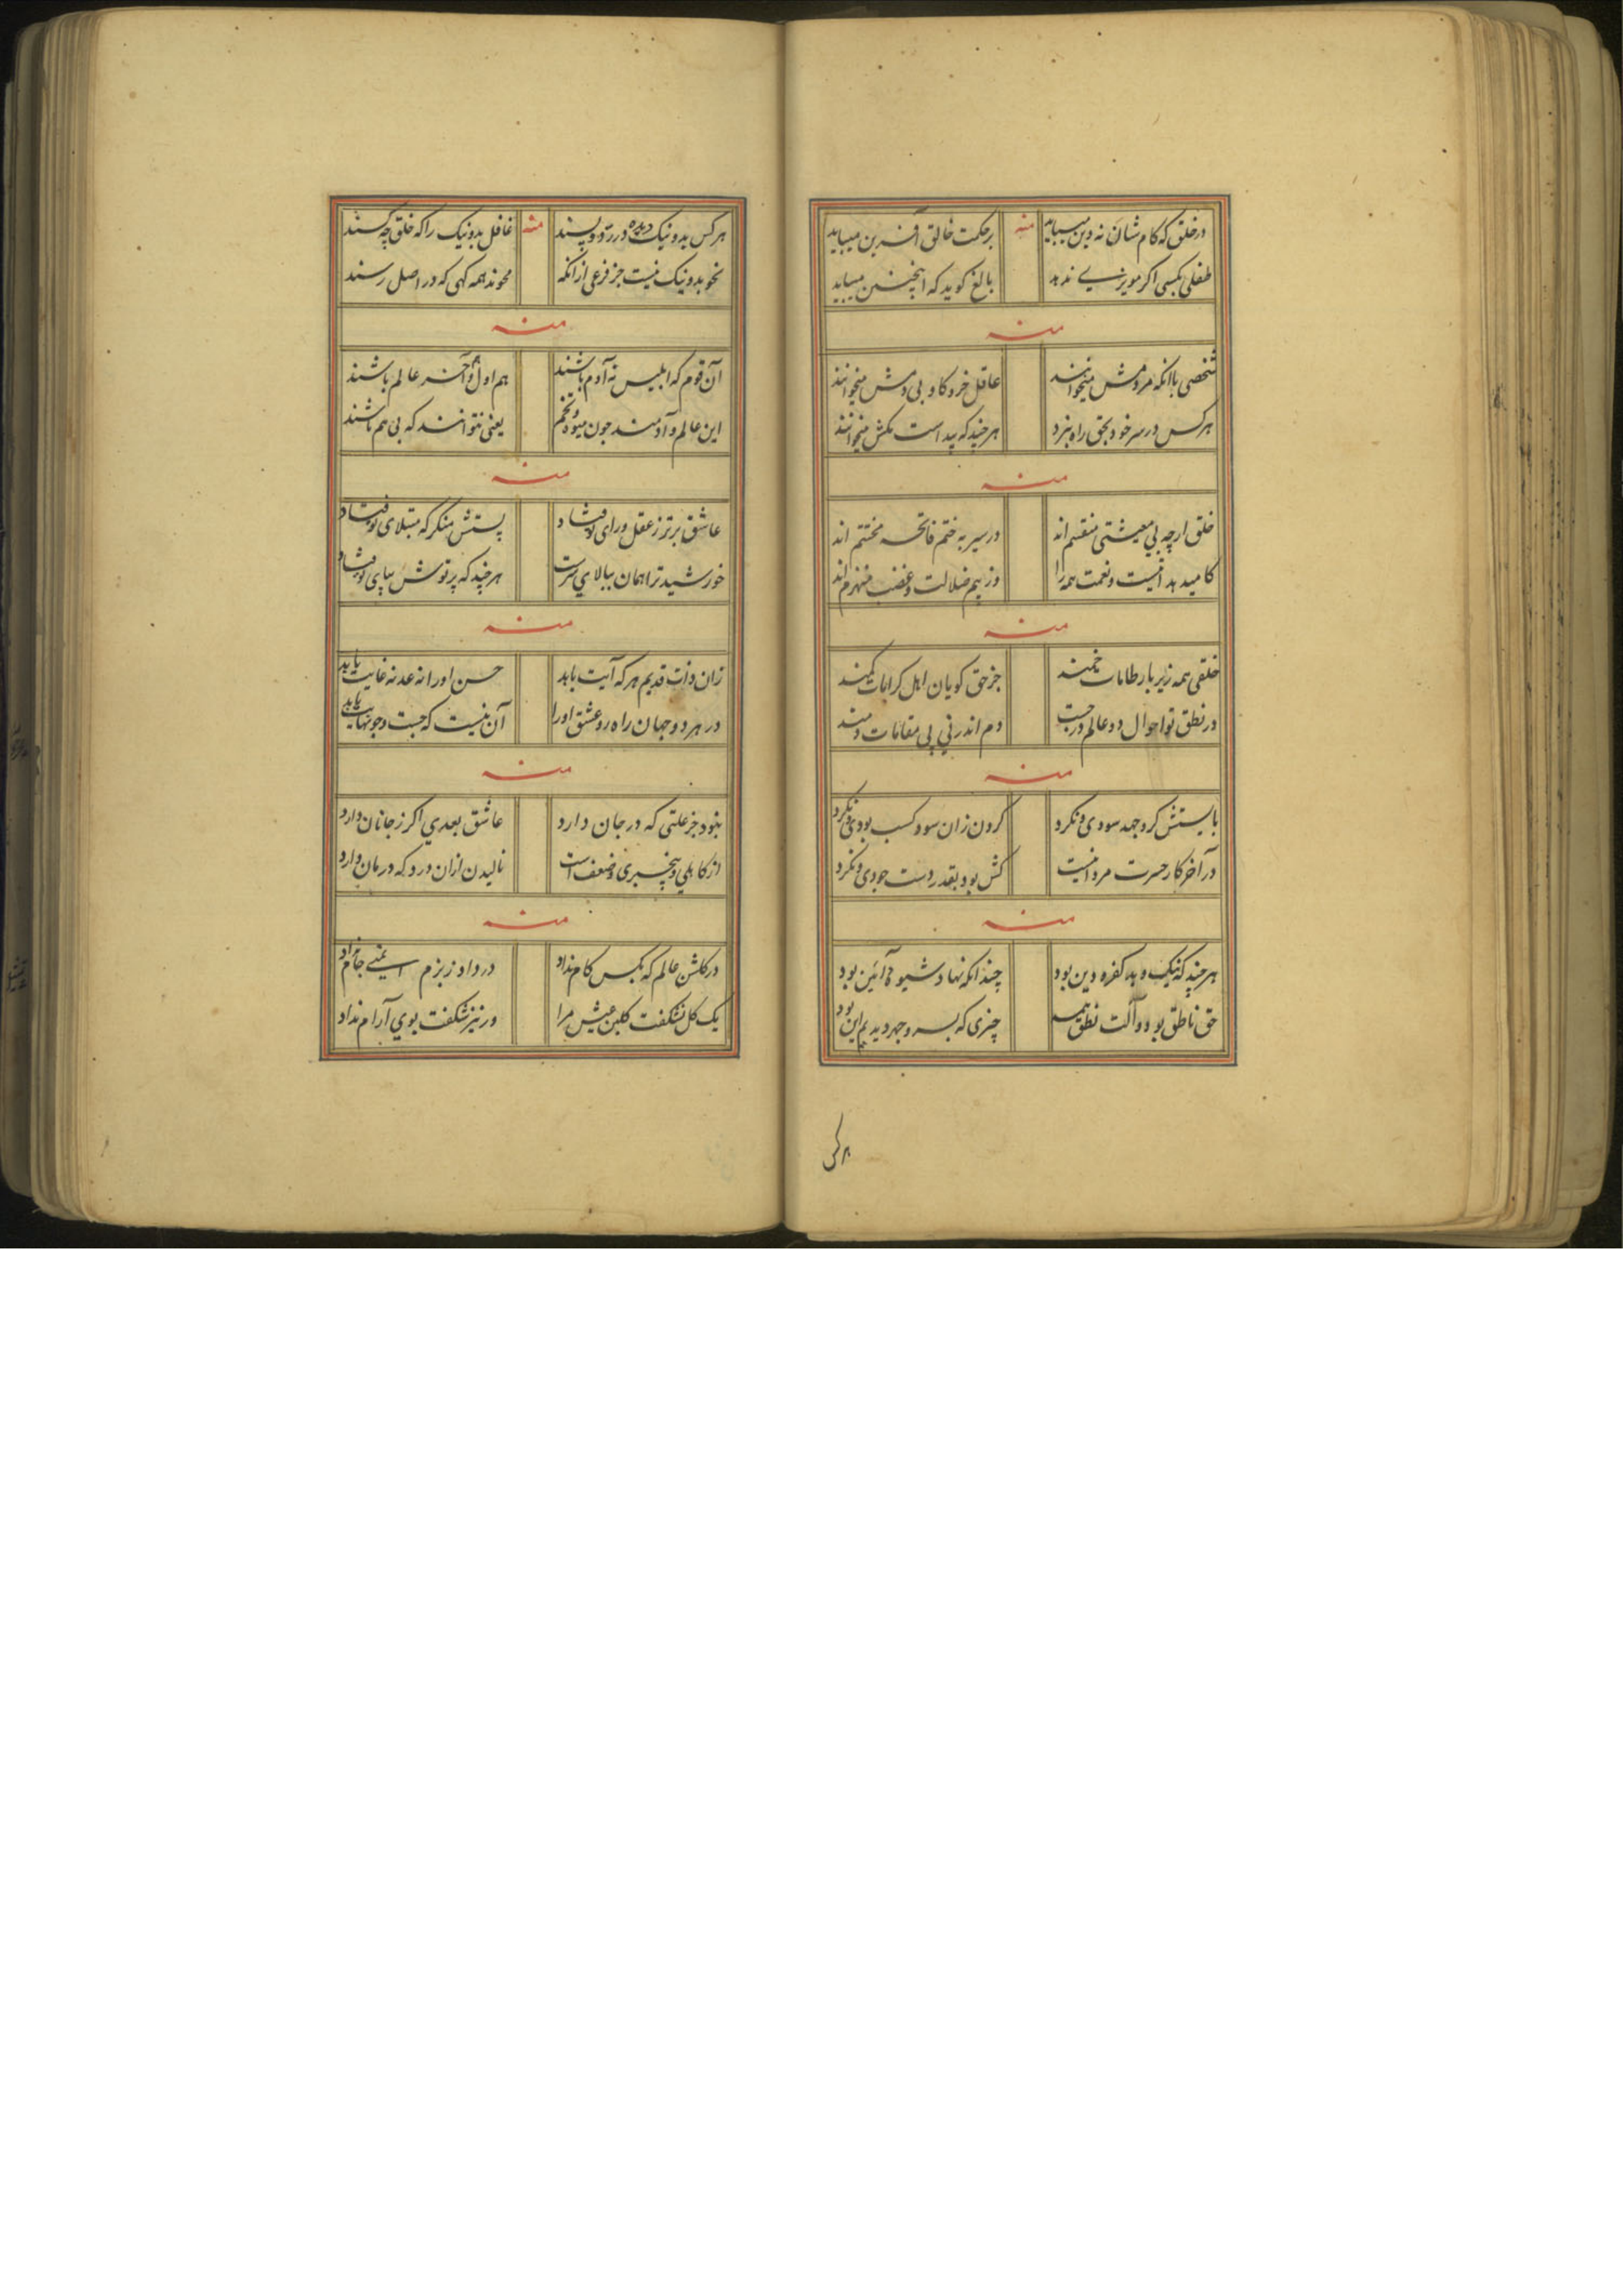 در خلق که کام شان نه دین میباید منه بر حکمت خالق آفرین میباید
طفلی بکسی اگر مویزی ندهد بالغ گوید که اینچنین میباید
منه
شخصی باانکه مردمش میخوانند عاقل خر و گاو بی دمش میخوانند
هر کس در سر خود بحق راه نبرد هر چند که پیداست گمش میخوانند
منه
خلق ارچه بی معیشتی منقسم اند در سیر به ختم فاتحه مختتم اند
کامید هدایت و نعمت همه را وز بیم ضلالت و غضب منهزم اند
منه
خلقی همه زیر بار طامات خمند جز حق گویان اهل کرامات کمند
در نطق تو احوال دو عالم درجست دم اندر نی پی مقامات دمند
منه
بایستش کرد جهد سودی و نکرد کردن زان سود کسب بودی و نکرد
در آخر کار حسرت مرد اینست کش بود بقدر دست جودی و نکرد
منه
هر چند که نیک و بد کفر و دین بود چندانکه نهاد شیوه و آئین بود
حق ناطق بود و آلت نطق همه چیزی که بسر و جهر دیدیم این بود
هر کس
هر کس بد و نیک دیده در رد و پسند منه غافل بد و نیک را که خلق چه کسند
نحو بد و نیک نیست جز فرعی ازانکه محوند همه گهی که در اصل رسند
منه
آن قوم که ابلیس نه آدم باشند هم اول و هم آخر عالم باشند
این عالم و آدمند چون میوه و تخم یعنی نتوانند که بی هم باشند
منه
عاشق برتر ز عقل و رای تو فتاد پستش منگر که مبتلای تو فتاد
خورشید ترا همان ببالای سرست هر چند که پرتوش بپای تو فتاد
منه
زان ذات قدیم هر که آیت یابد حسن او را نه عد نه غایت یابد
در هر دو جهان راه رو عشق او را آن نیست که جست و جو نهایت یابد
منه
نبود جز علتی که در جان دارد عاشق بعدی اگر ز جانان دارد
از کاهلی و بیخبری و ضعف است نالیدن ازان درد که درمان دارد
منه
در گلشن عالم که بکس کام نداد درداد ز بزم ایمنی جام نداد
یک گل نشکفت گلبن عیش مرا ور نیز شکفت بوی آرام نداد